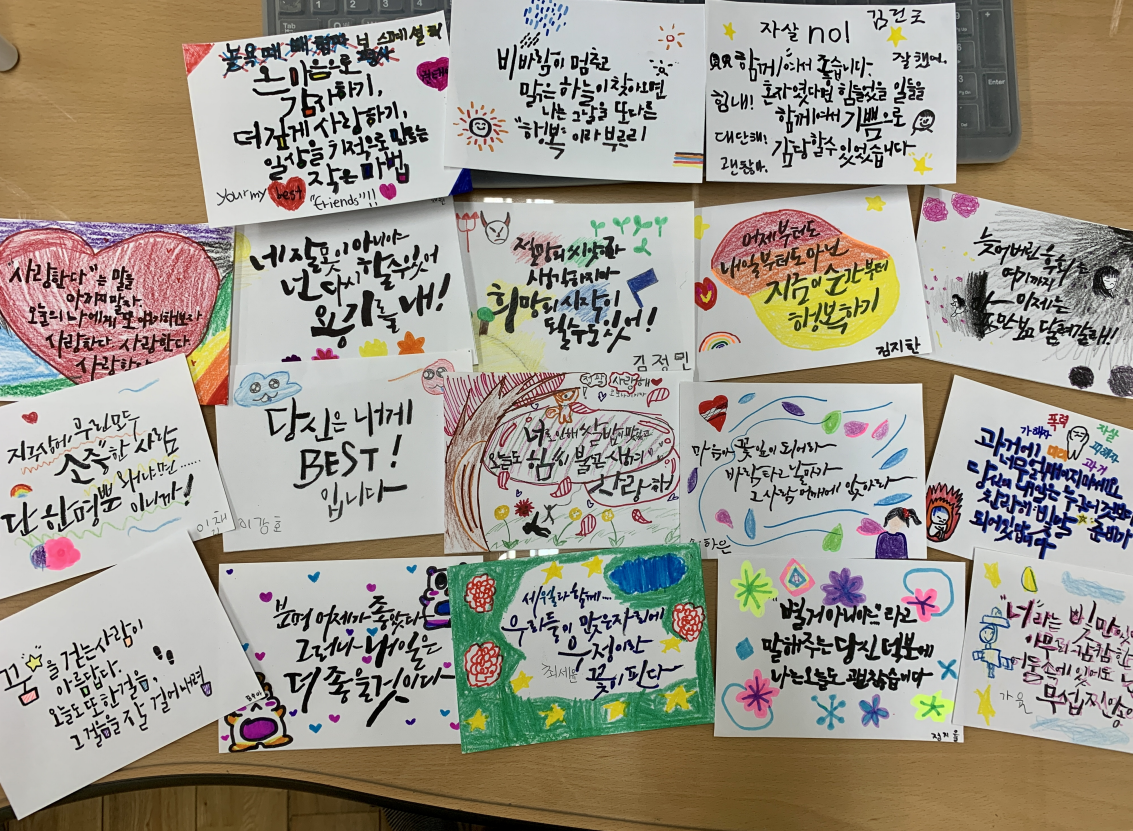 온 마음으로
감사하기,
더 깊게 사랑하기,
일상을 기적으로 만드는
작은 마법
your my best "friends"!!
비바람이 멈추고
맑은 하늘이 찾아오면
나는 그날을 또다른
"행복" 이라 부르리
김건호
자살 no!
함께여서 좋습니다.
잘했어.
혼자였다면 힘들었을 일들을
힘내!
함께여서 기쁨으로
대단해!
감당할수 있었습니다
괜찮아.
사랑한다"는 말을
아끼지말자.
오늘의 나에게
사랑한다 사랑한다
네 잘못이 아니야
넌 다시 할수있어
용기를 내!
절망의 씨앗이라
생각하지마
희망의 시작이
될수도 있어!
김정민
어제부터도
내일부터도 아닌
지금 이 순간부터
행복하기
김지한
늦어버린 후회는
여기까지
이제는
앞만보고 달려갈래!
지구상에 우린모두
소중한 사람
왜냐면......
단 한명뿐 이니까!
당신은 나에게
BEST!
입니다
이강호
너로 인해
오늘도 힘씨 불끈 사랑해
사랑해
마음아 꽃잎이 되어라
바람타고 날아라
그 사람 어깨에 앉아라
하은
폭력
자살
가해자
피해자
과거
과거에 너무 뒤돌아보지마세요
당신의
찬란히 빛날 준비가
되어있답니다
꿈을 걷는 사람이
아름답다.
오늘도 또 한걸음,
그 걸음을 잘 걸어내려
분명 어제가 좋았다
그러나 내일은
더 좋을것이다
세월과 함께....
우리들이 만든자리에
우정이란
꽃이 핀다
최세은
"별거 아니야"라고
말해주는 당신 덕분에
나는 오늘도 괜찮습니다
"너"라는 빛만
아무리 캄캄한
어둠속에 있어도 난
무섭지않아
가윤